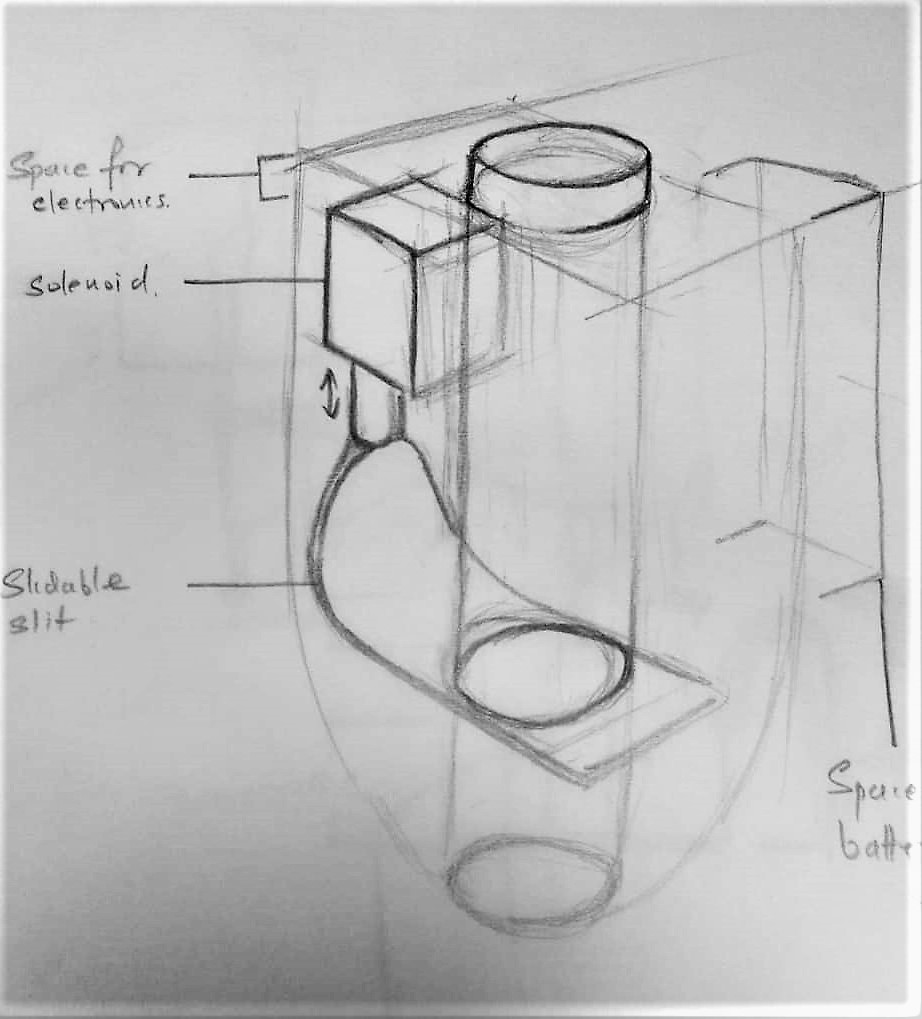 Space for
electronics.
Solenoid.
Slidable
slit
Space
batte